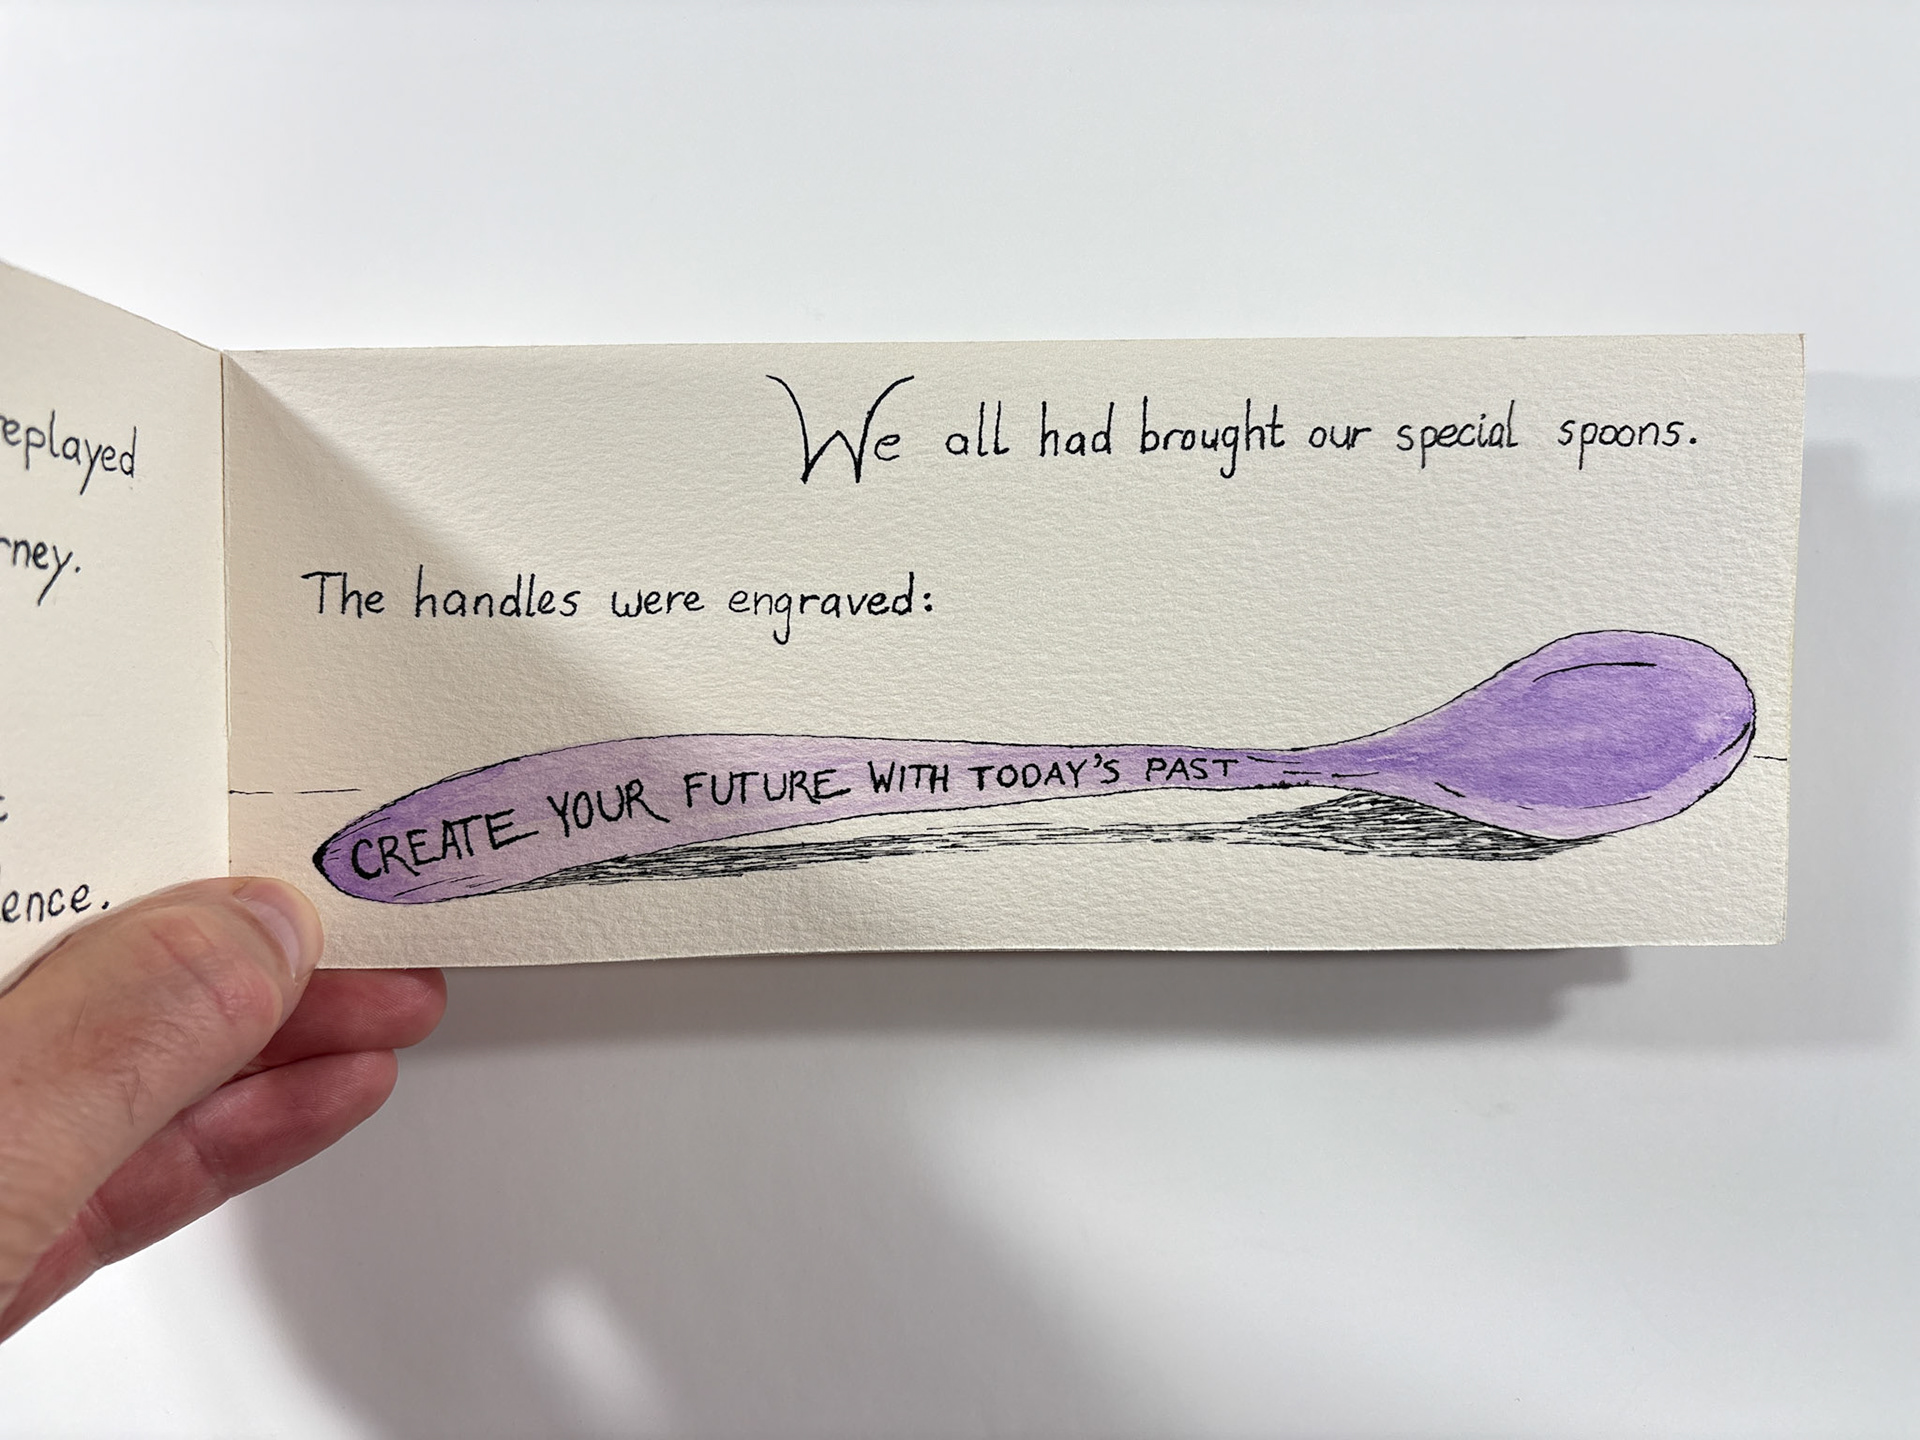 replayed
We all had brought our special spoons.
The handles were engraved:
CREATE YOUR FUTURE WITH TODAY'S PAST